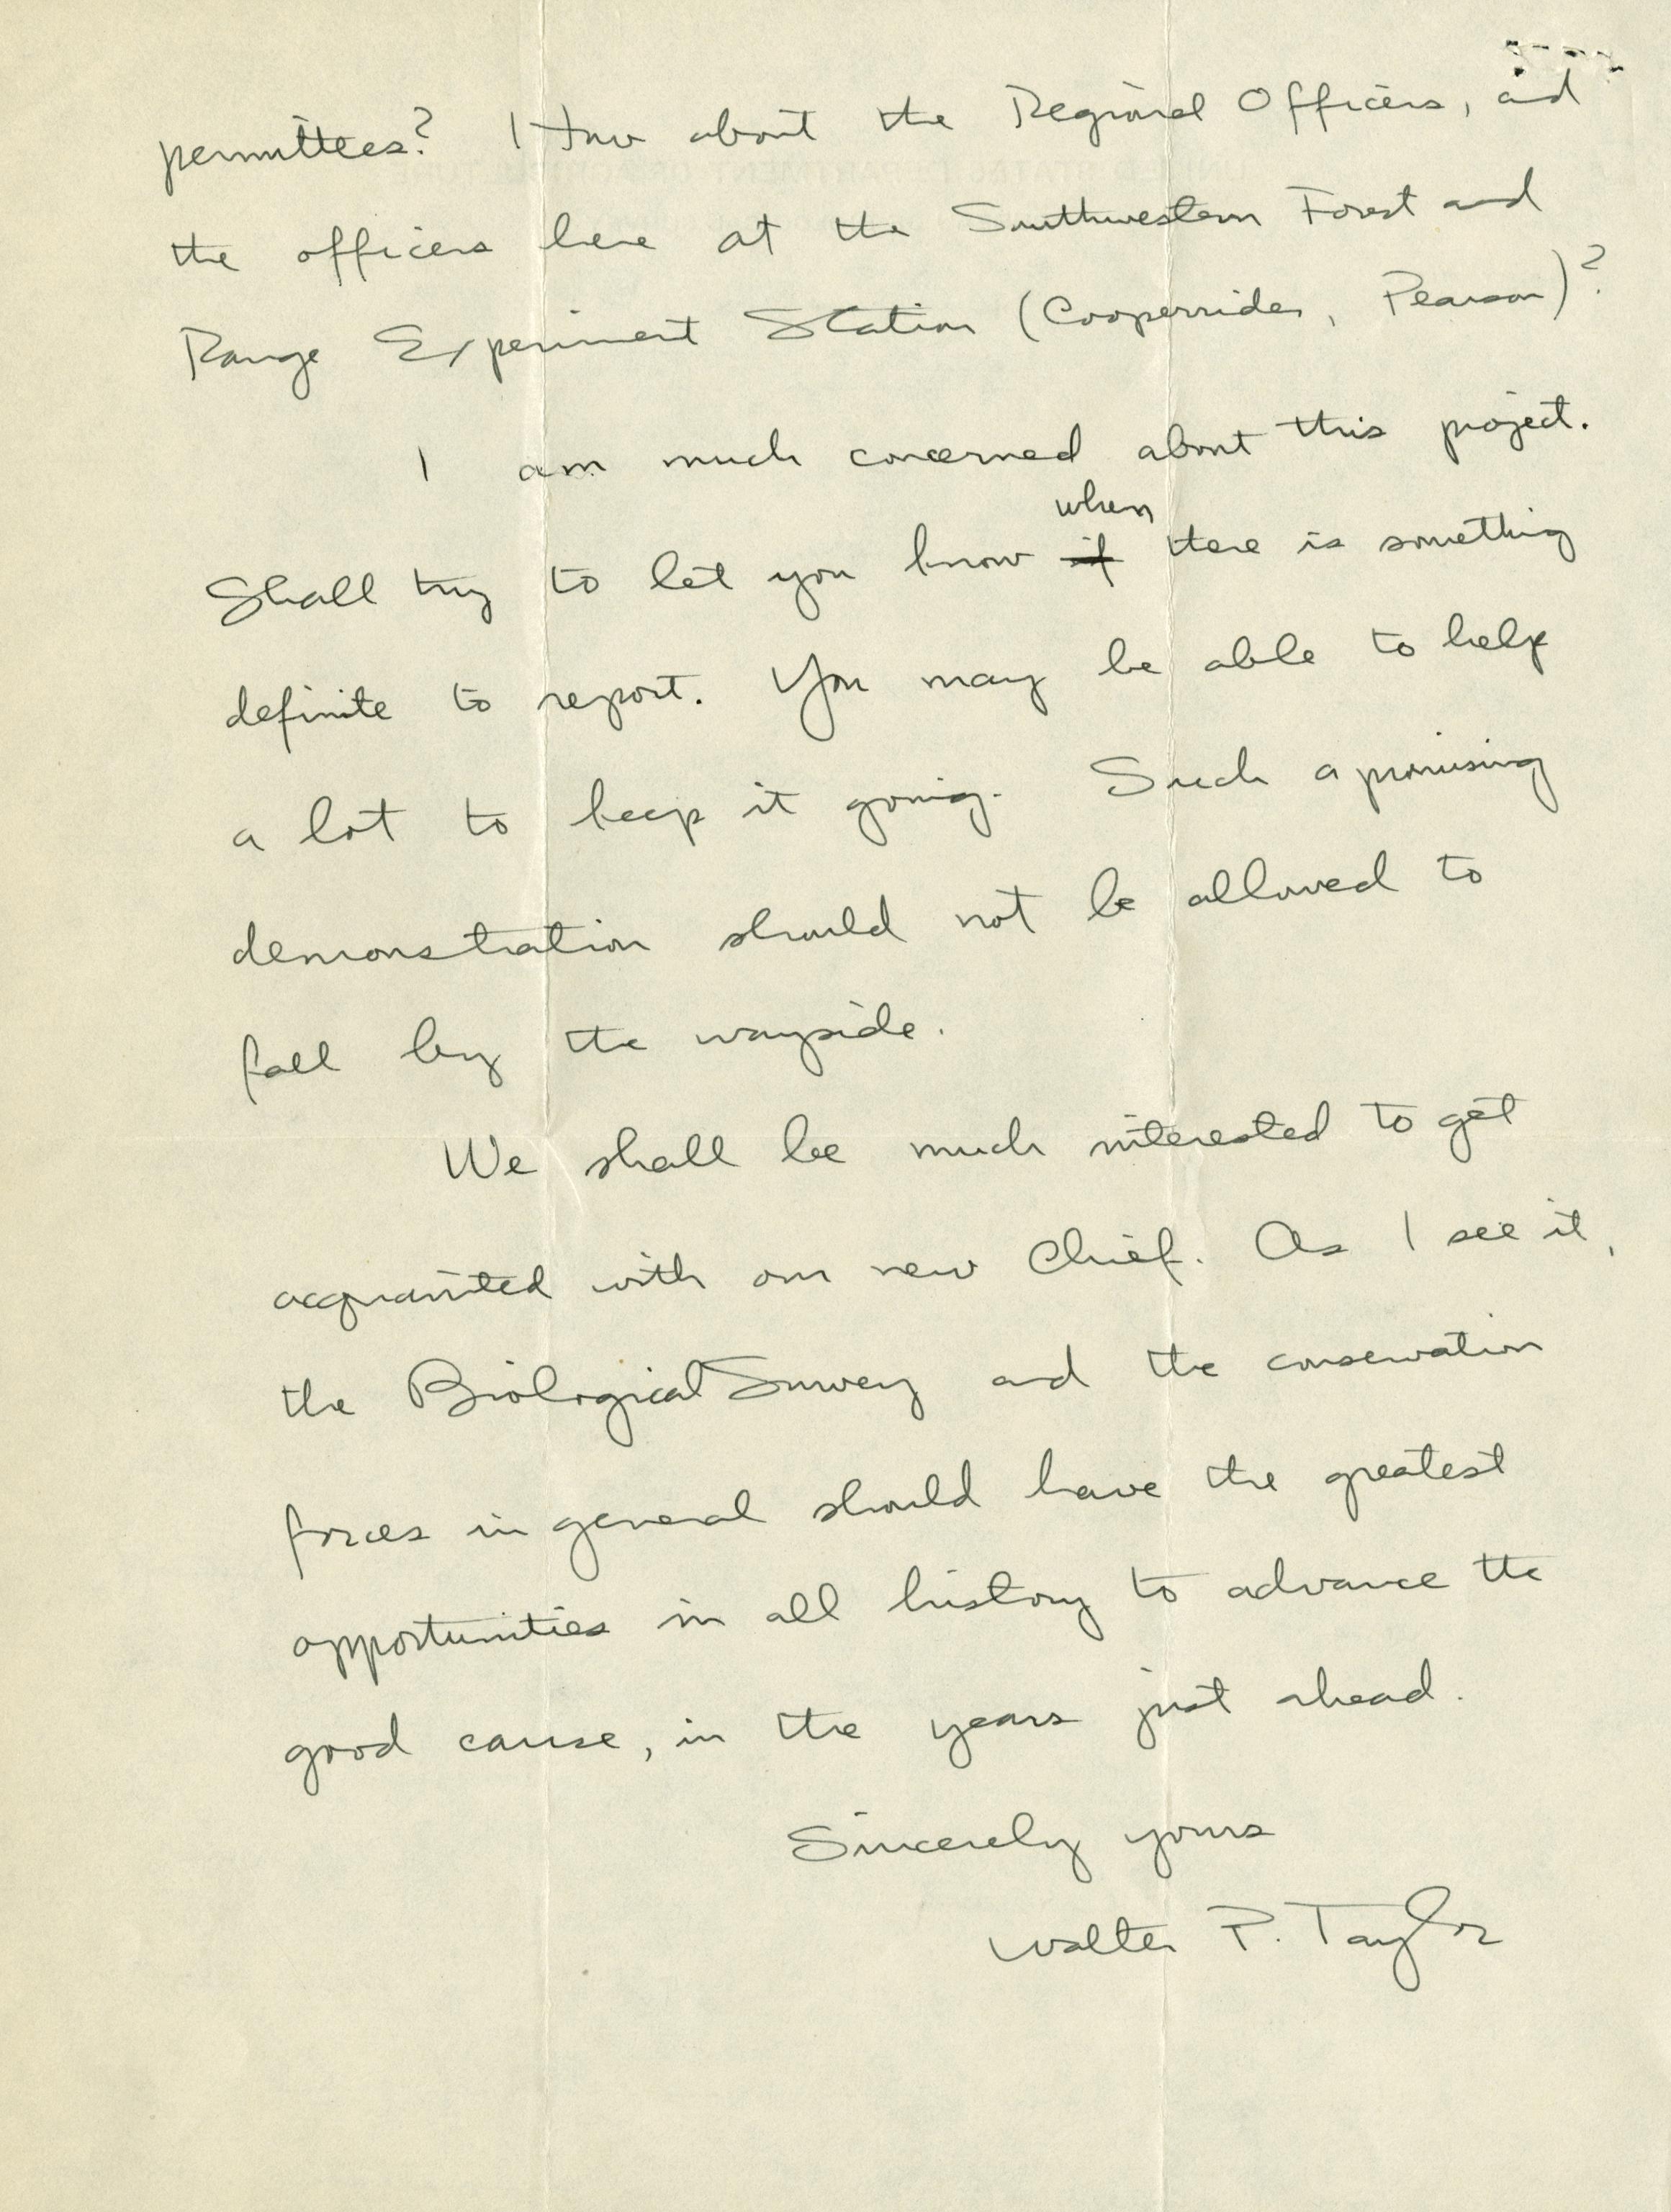 permittees? How about the Regional Officers, and
the officers here at the Southwestern Forest and
Range Experiment Station (Cooperrider, Pearson)?
I am much concerned about this project.
when
Shall try to let you know if there is something
definite to report. You may be able to help
a lot to keep it going. Such a promising
demonstration should not be allowed to
fall by the wayside.
We shall be much interested to get
acquainted with our new Chief. As I see it,
the Biological Survey and the conservation
forces in general should have the greatest
opportunities in all history to advance the
good cause, in the years just ahead.
Sincerely yours
Walter P. Taylor